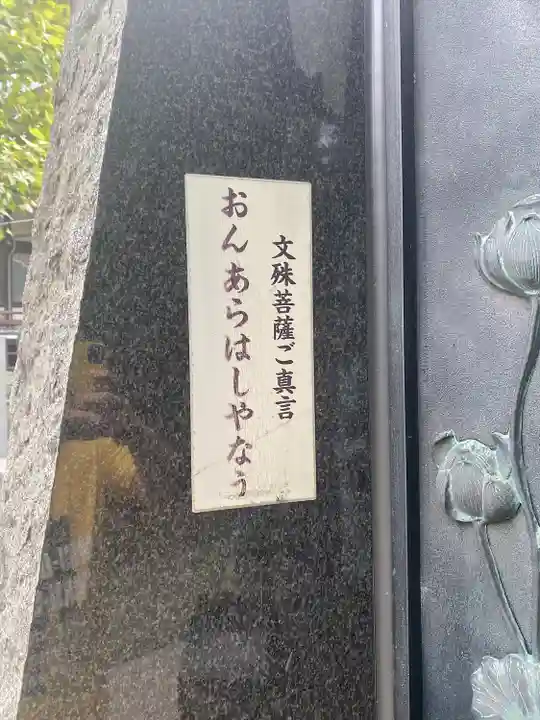 文殊菩薩ご真言
おんあらはしゃなう